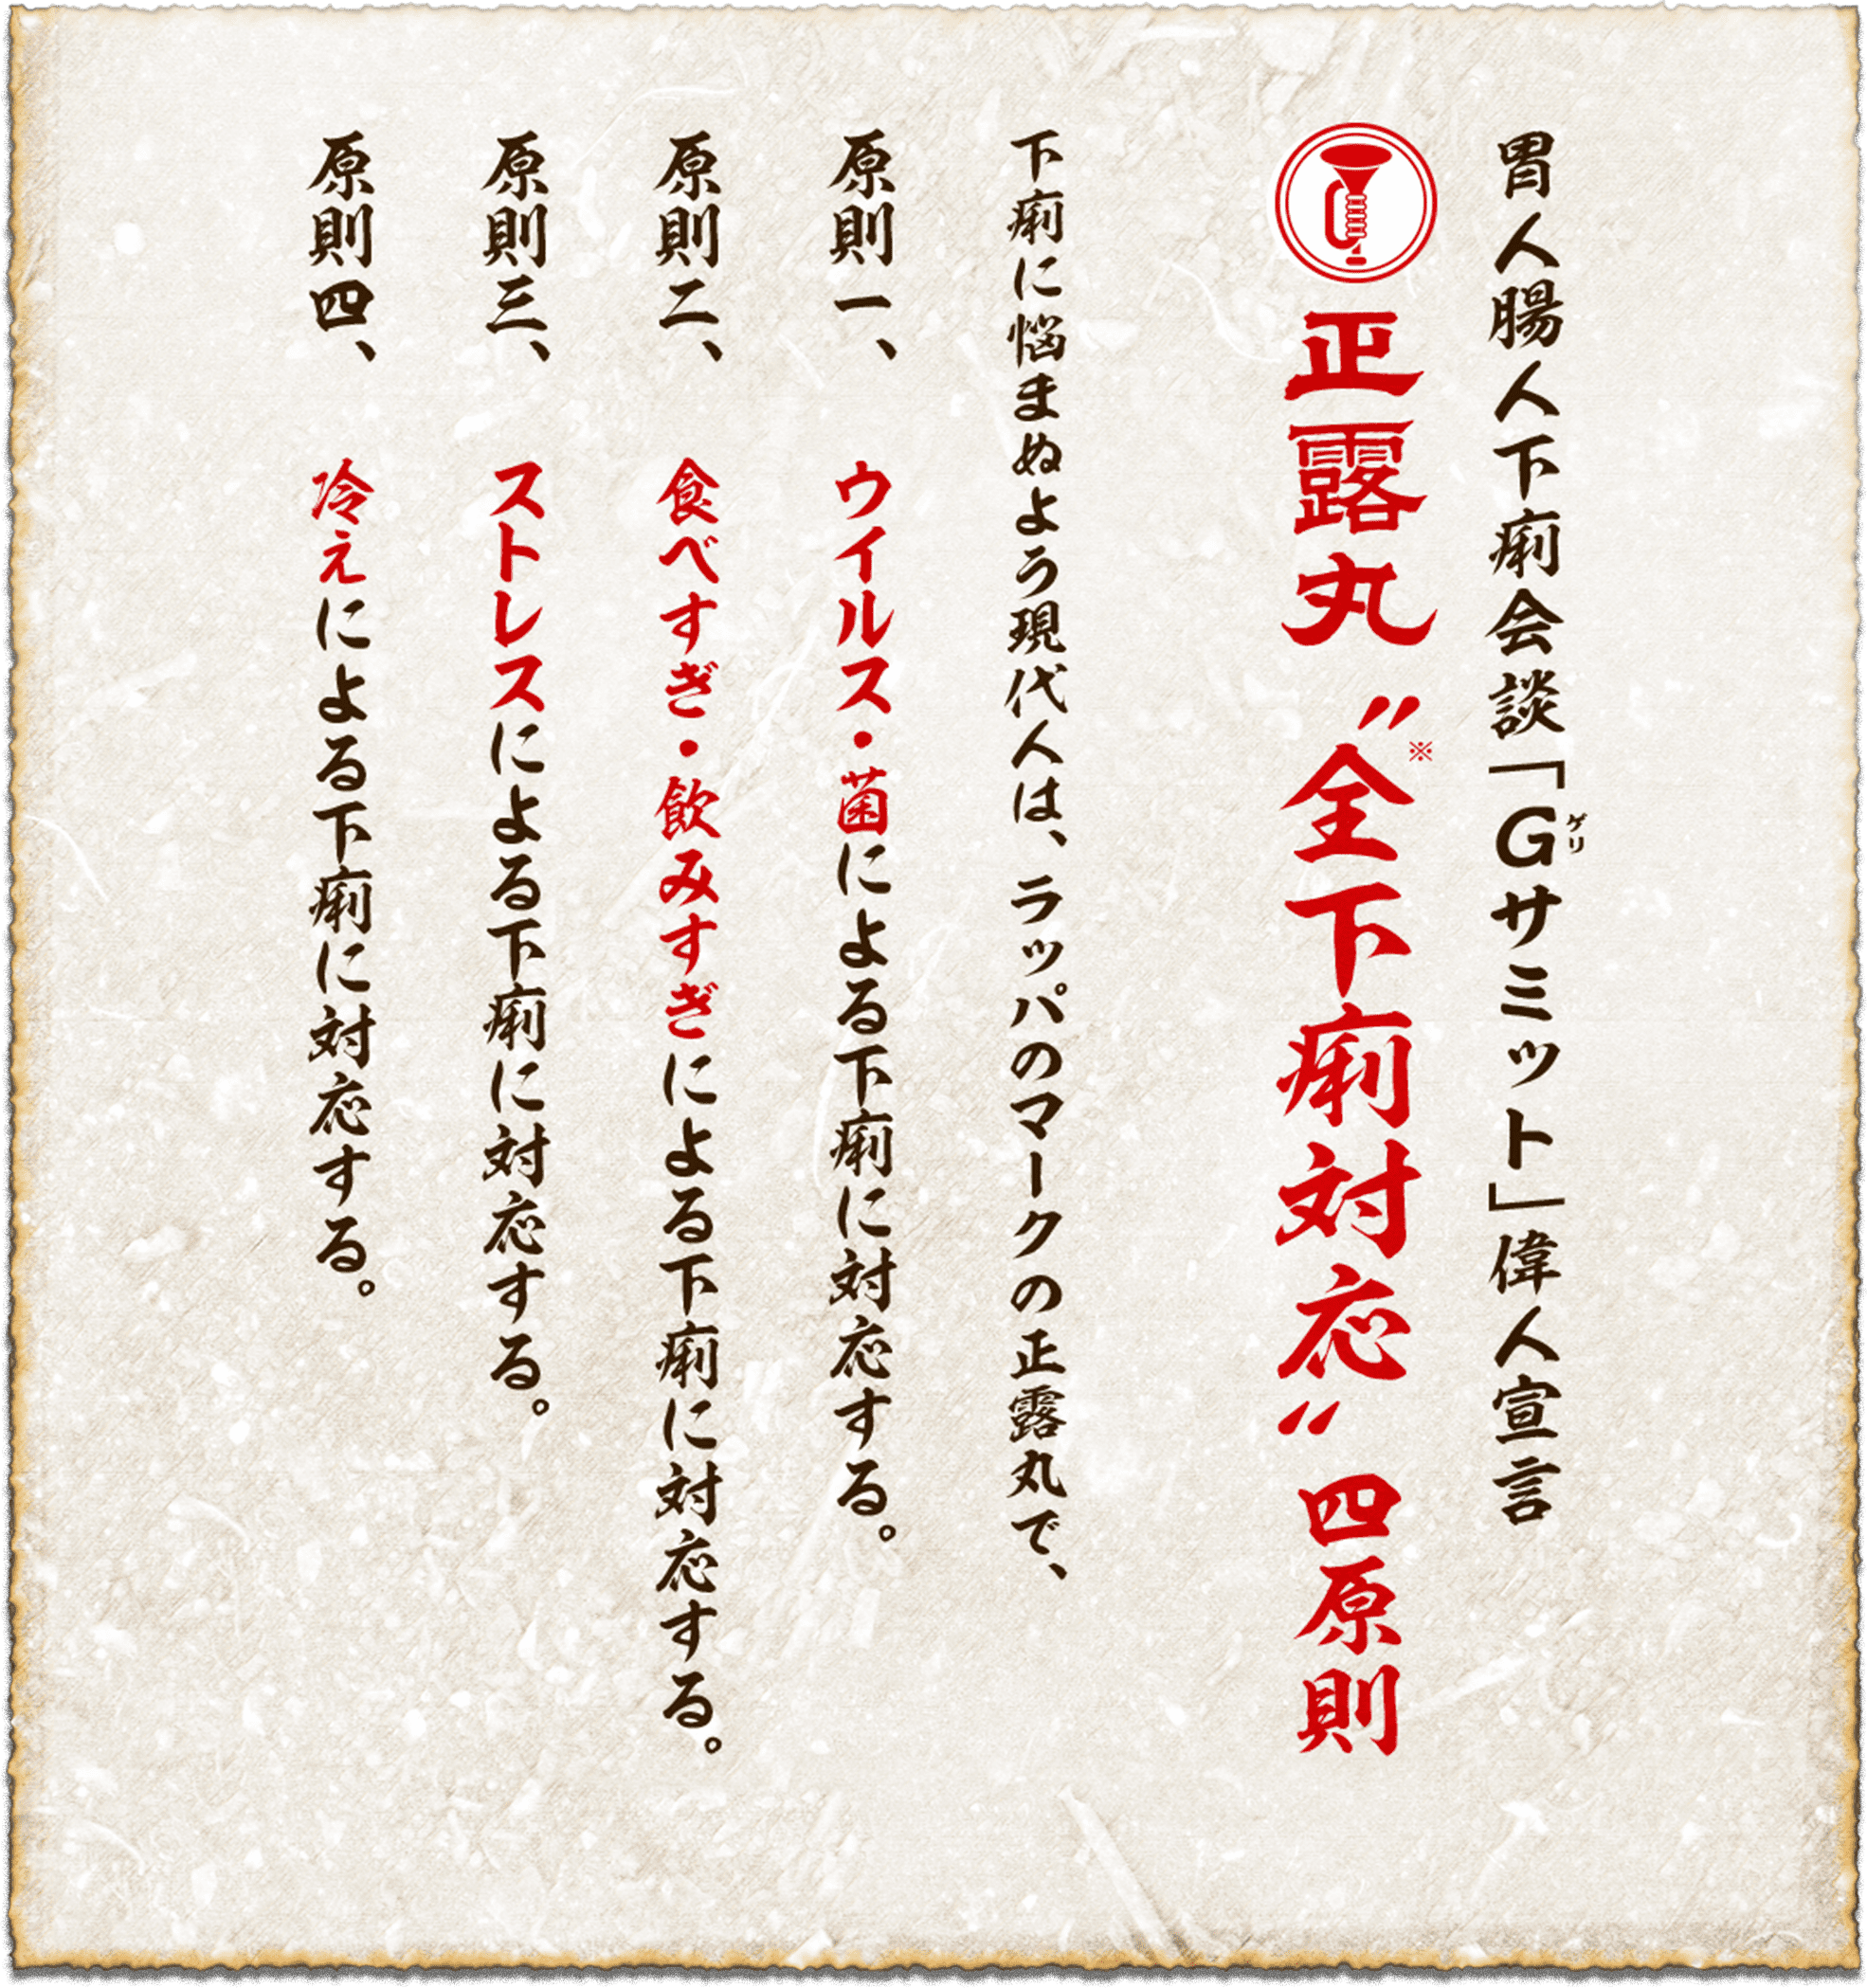 胃人腸人下痢会談「Gサミット」偉人宣言
ゲリ
正露丸〝全下痢対応〟四原則
※
下痢に悩まぬよう現代人は、ラッパのマークの正露丸で、
原則一、 ウイルス・菌による下痢に対応する。
原則二、 食べすぎ・飲みすぎによる下痢に対応する。
原則三、 ストレスによる下痢に対応する。
原則四、 冷えによる下痢に対応する。